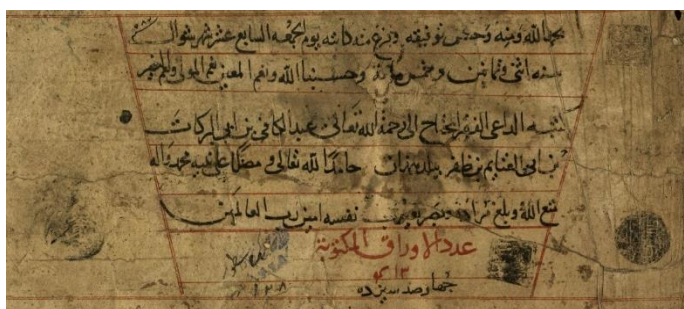 بحمد الله ومنه وحسن توفيقه وفرغ من كتابته يوم الجمعه السابع عشر شهر شوال
سنه اثنى وثمانين وخمس مائة وحسبنا الله ونعم المعين نعم المولى ونعم النصير
كتبه الداعى الفقير المحتاج الى رحمة الله تعالى عبد الكافى بن ابى البركات
بن ابى الغنايم بن ظفر ببلد همذان حامدا لله تعالى ومصليا على نبيه محمد واله
متع الله وبلغ مراده نفسه امين رب العالمين
عدد الاوراق المكتوبة
٤١٣
چهار صد سيزده